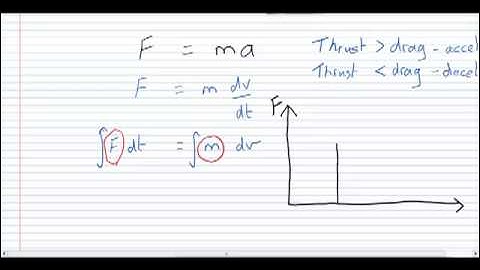 F = ma
F = m dv/dt
∫F dt = ∫m dv
Thrust > drag - accel
Thrust < drag - decel
F